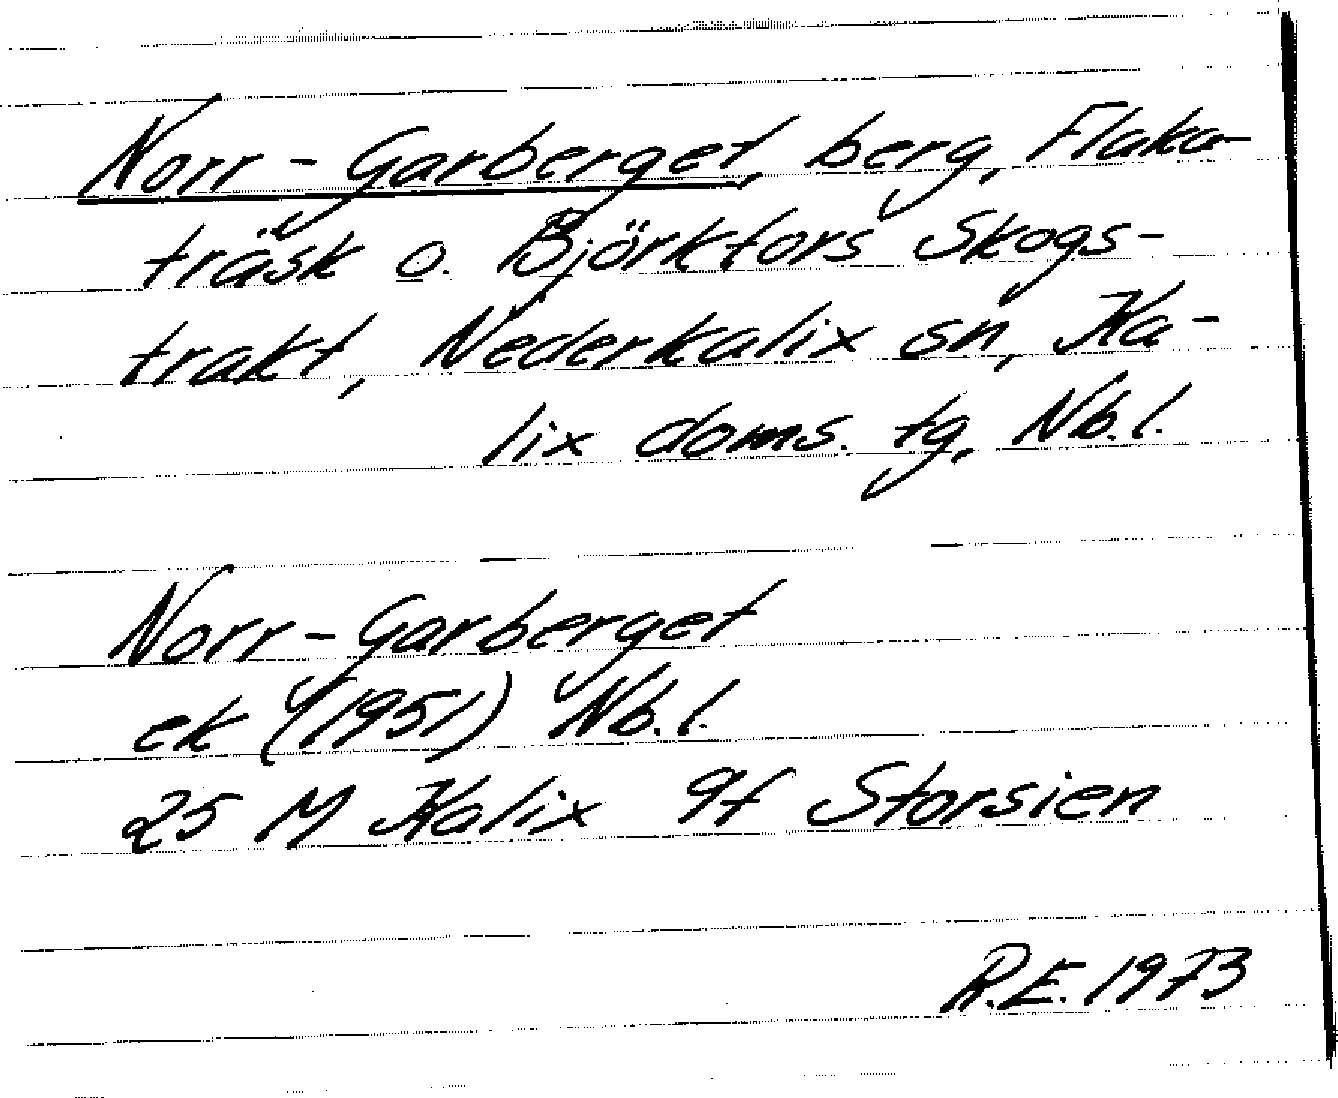 Norr-Garberget, berg, Flaka-
träsk o. Björkfors Skogs-
trakt, Nederkalix sn, Ka-
lix doms. tg, Nb.l.
Norr-Garberget
ek (1951) Nb.l.
25 M Kalix 9f Storsien
R.E. 1973